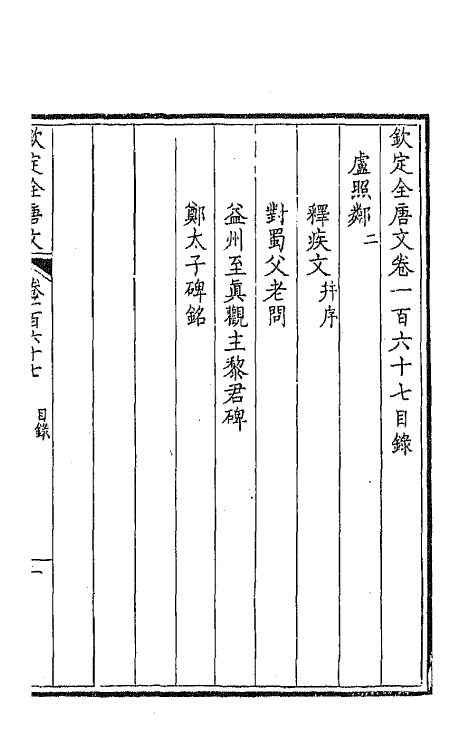 欽定全唐文卷一百六十七目錄
盧照鄰二
釋疾文并序
對蜀父老問
益州至真觀主黎君碑
鄭太子碑銘
欽定全唐文
卷一百六十七
目錄
一